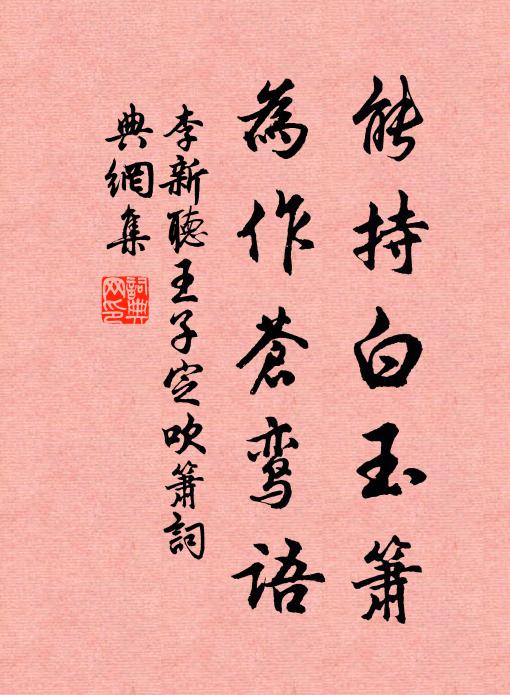 能持白玉箫
為作苍鸾語
李新聽王子定吹箫詞
典網集
詞典
网印